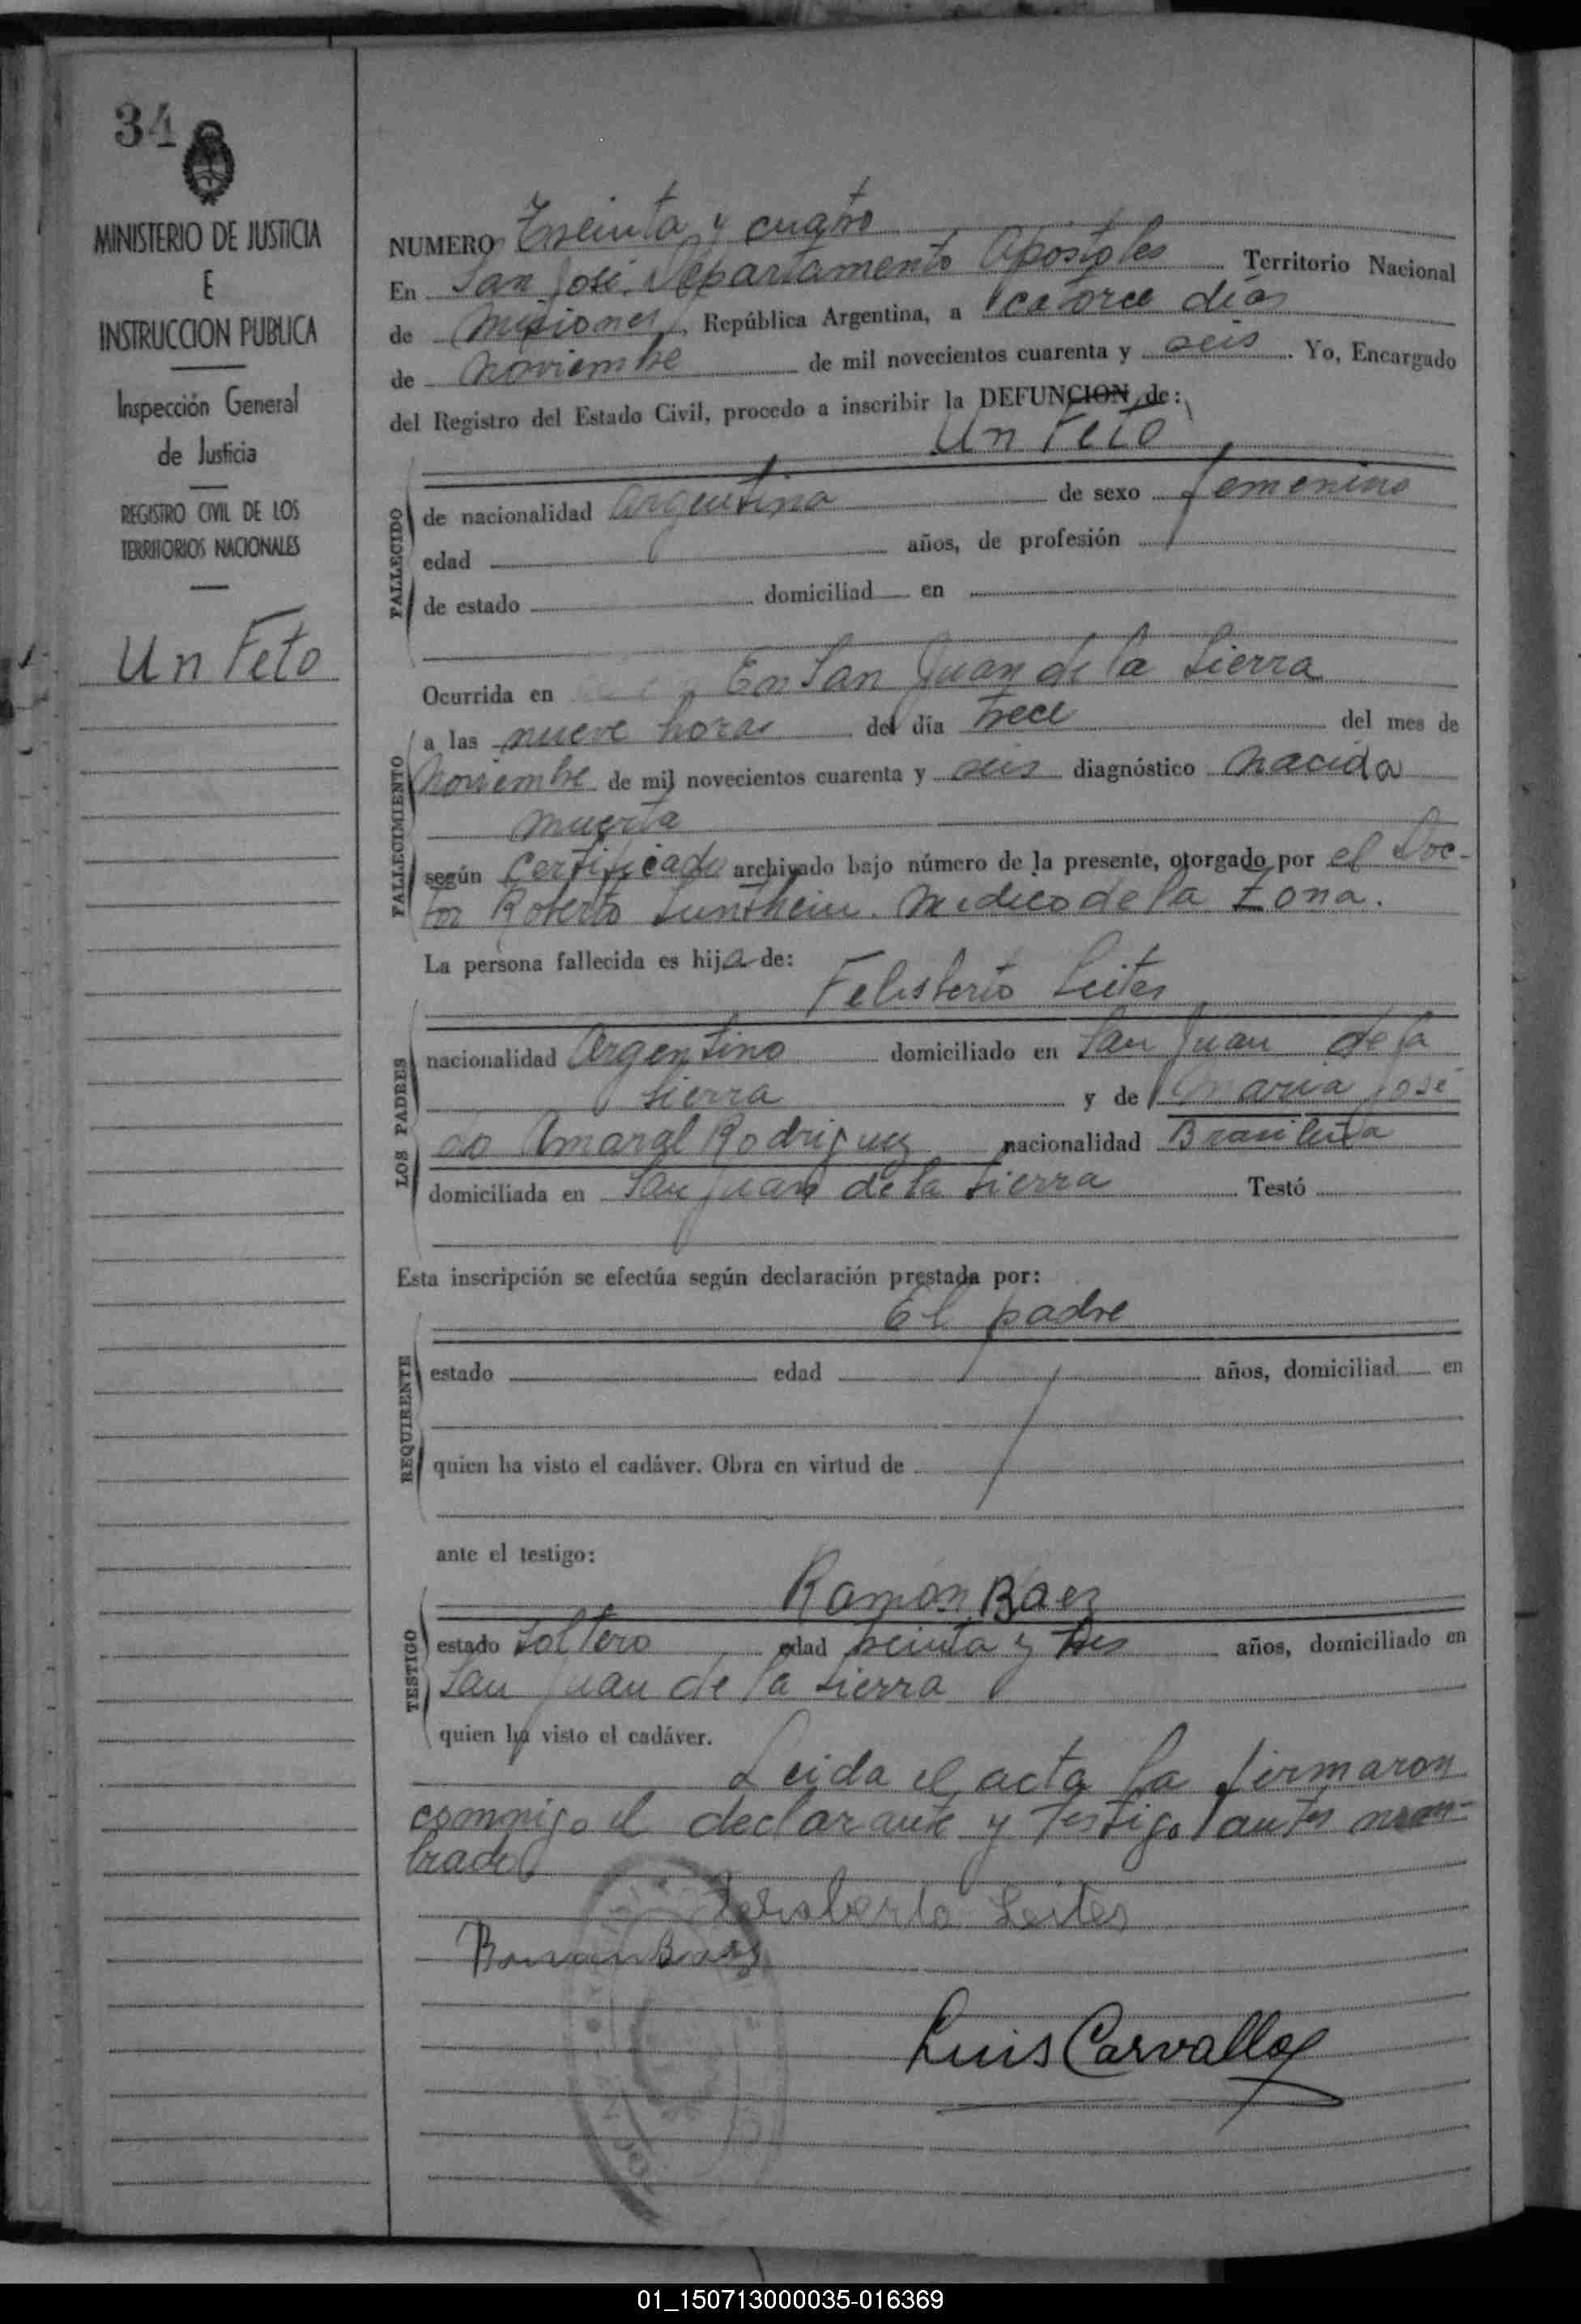 34
MINISTERIO DE JUSTICIA
E
INSTRUCCION PUBLICA
Inspección General
de Justicia
REGISTRO CIVIL DE LOS
TERRITORIOS NACIONALES
Un Feto
NUMERO Treinta y cuatro
En San José, Departamento Apóstoles Territorio Nacional
de Misiones, República Argentina, a catorce días
de noviembre de mil novecientos cuarenta y seis. Yo, Encargado
del Registro del Estado Civil, procedo a inscribir la DEFUNCION de:
Un Feto
FALLECIDO
de nacionalidad argentina de sexo femenino
edad años, de profesión
de estado domiciliad en
Ocurrida en En San Juan de la Sierra
FALLECIMIENTO
a las nueve horas del día trece del mes de
Noviembre de mil novecientos cuarenta y seis diagnóstico nacida
muerta
según certificado archivado bajo número de la presente, otorgado por el Doc-
tor Roberto medico de la zona.
La persona fallecida es hija de:
Felisberto Leites
LOS PADRES
nacionalidad argentino domiciliado en San Juan de la
Sierra y de Maria José
do Amaral Rodriguez nacionalidad Brasileña
domiciliada en San Juan de la Sierra Testó
Esta inscripción se efectúa según declaración prestada por:
El padre
REQUIRENTE
estado edad años, domiciliad en
quien ha visto el cadáver. Obra en virtud de
ante el testigo:
Ramón Baez
TESTIGO
estado Soltero edad treinta y tres años, domiciliado en
San Juan de la Sierra
quien ha visto el cadáver.
Leida el acta la firmaron
conmigo el declarante y testigo antes nom-
brado
Leites
Luis Carvallo
01_150713000035-016369